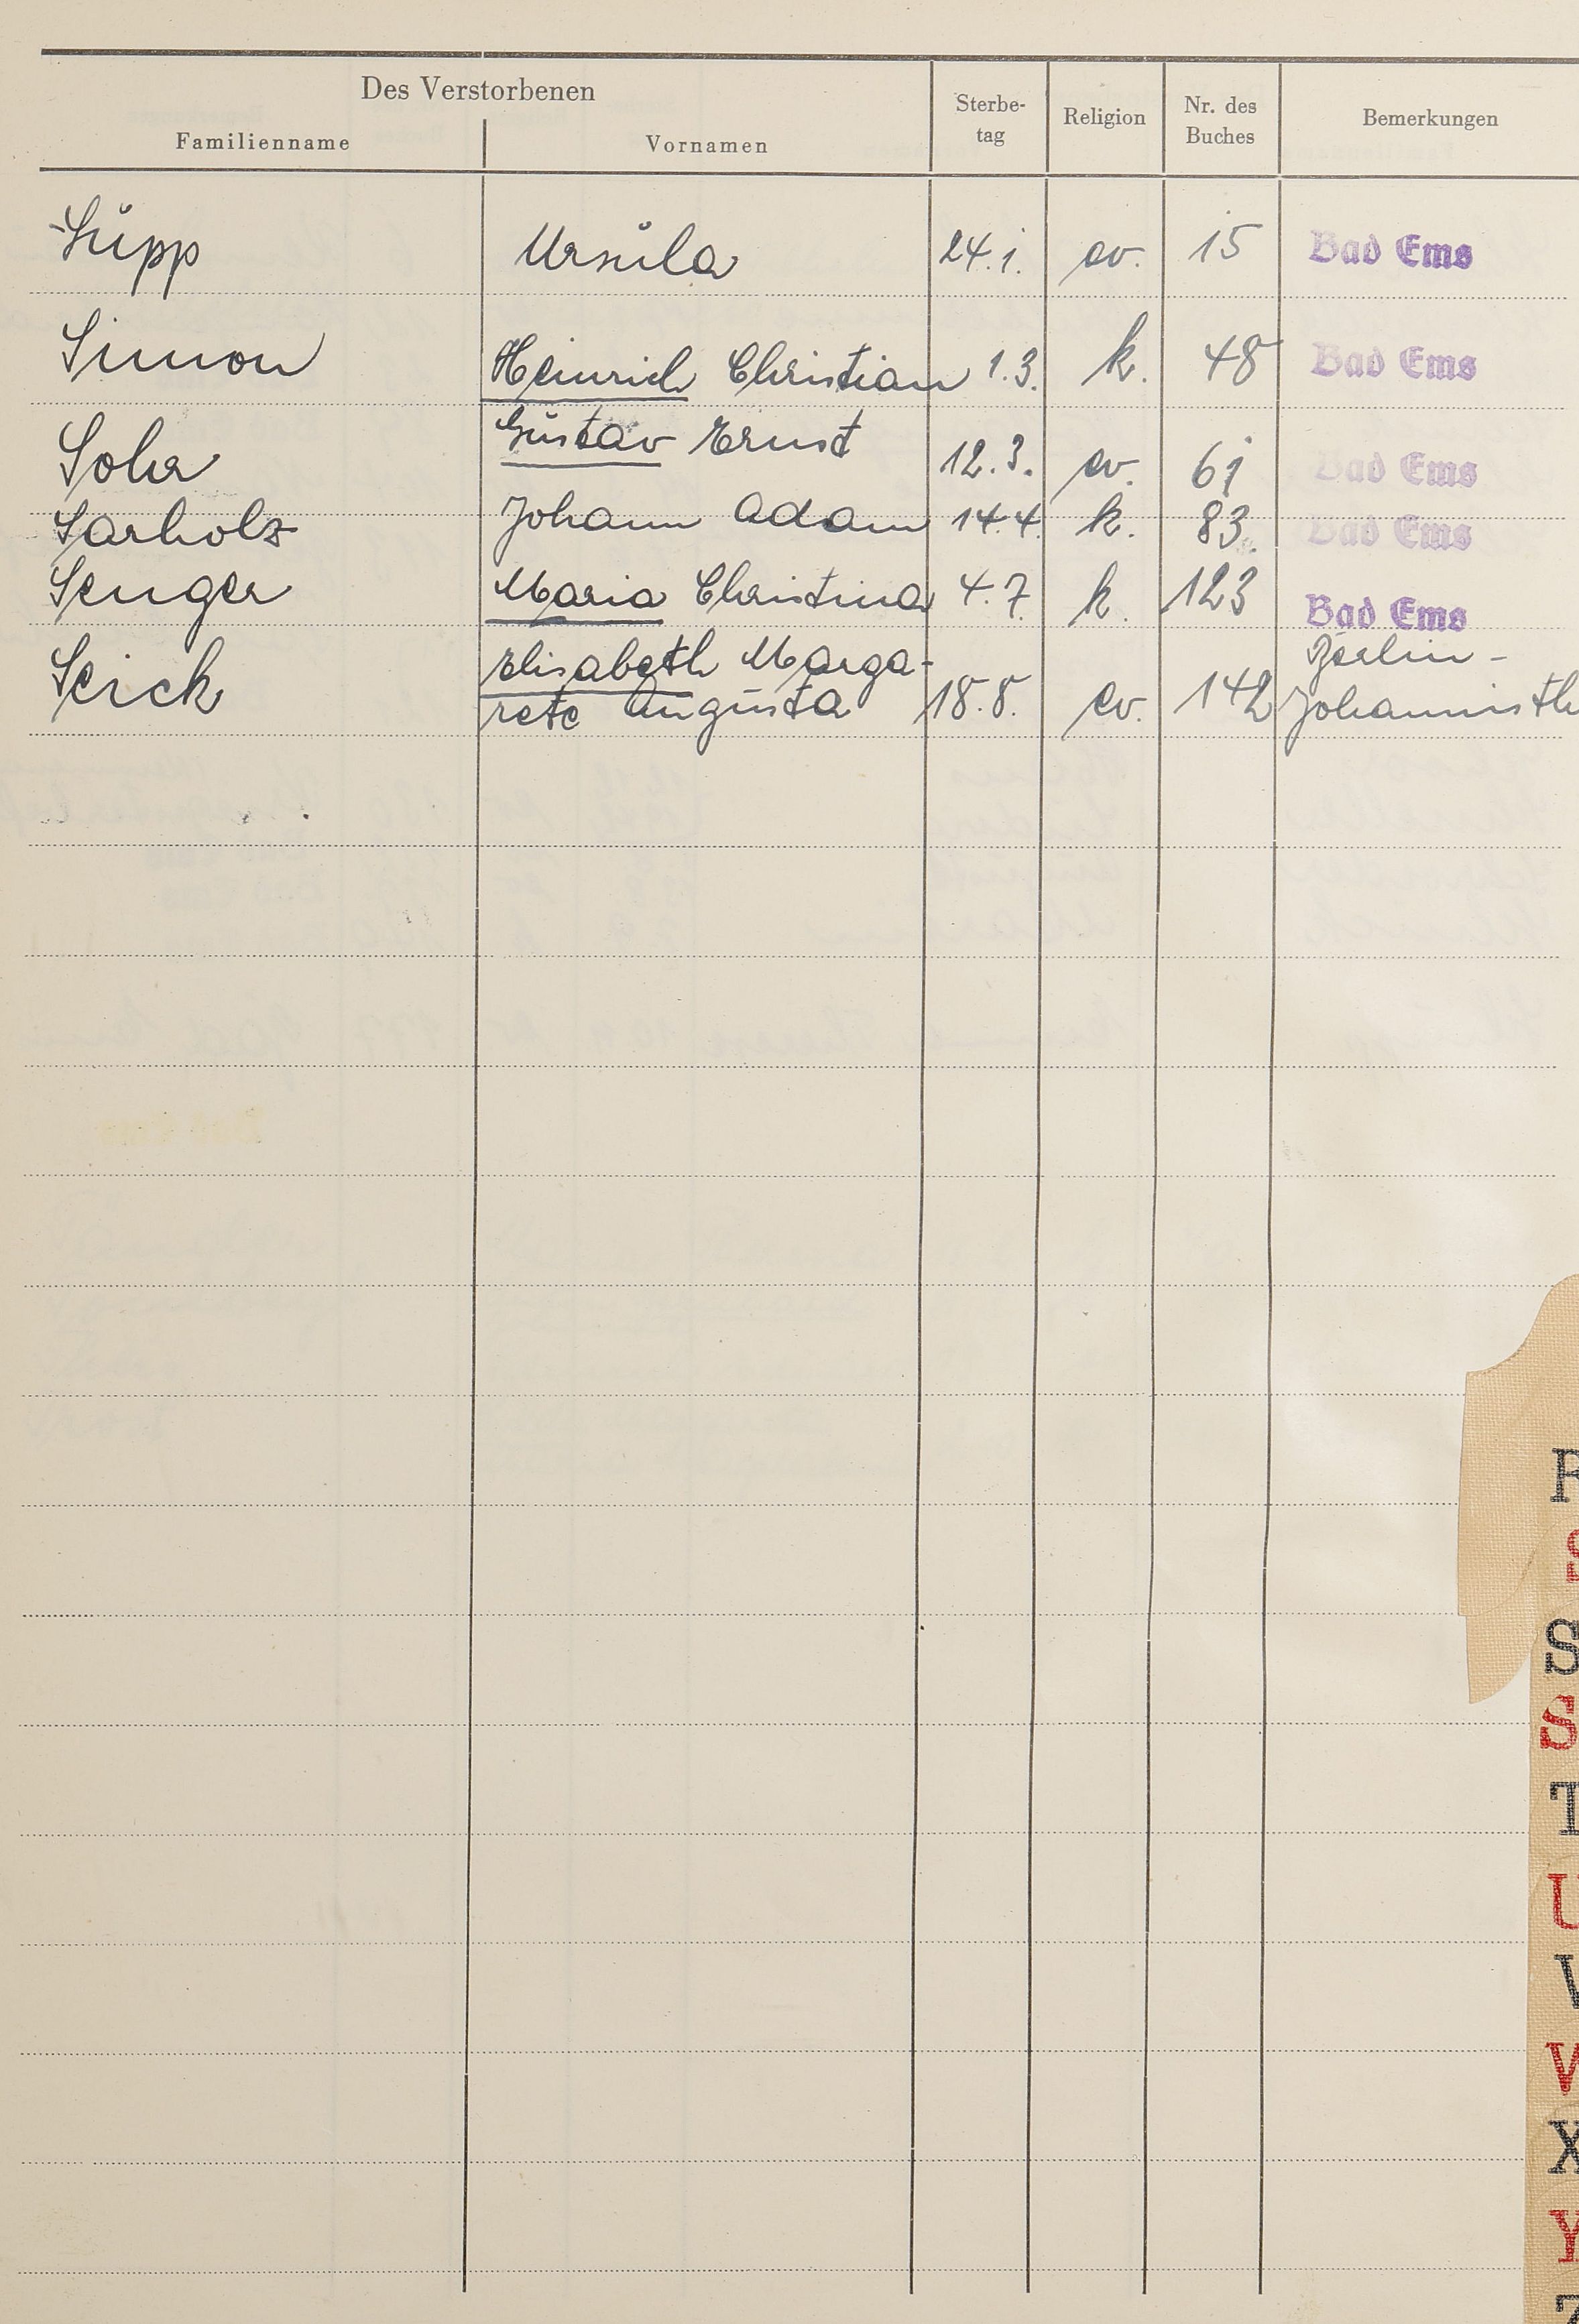 Des Verstorbenen
Familienname Vornamen Sterbe-tag Religion Nr. des Buches Bemerkungen
Supp Ursula 24.1. ev. 15 Bad Ems
Simon Heinrich Christian 1.3. k. 48 Bad Ems
Sohr Gustav Ernst 12.3. ev. 61 Bad Ems
Sarholz Johann Adam 14.4. k. 83. Bad Ems
Senger Maria Christina 4.7. k. 123 Bad Ems
Seick Elisabeth Marga- Berlin-
rete Augusta 18.8. ev. 142 Johannisth
S
S
T
U
V
W
X
Y
Z